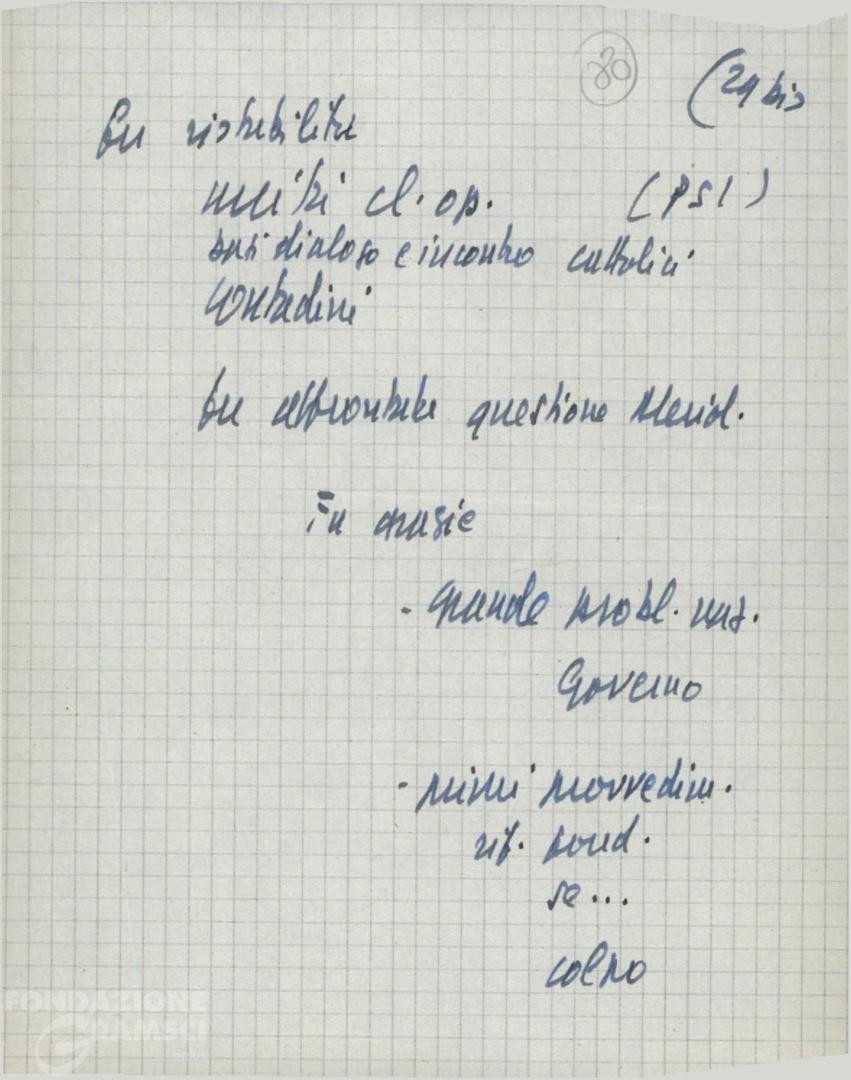 30
(29 bis
fu ristabilita
unità cl. op. (PSI)
basi dialogo e incontro cattolici
contadini
fu affrontata questione Merid.
Fu grazie
- grande probl. naz.
Governo
- primi provvedim.
rif. fond.
se...
colpo
FONDAZIONE
GRAMSCI